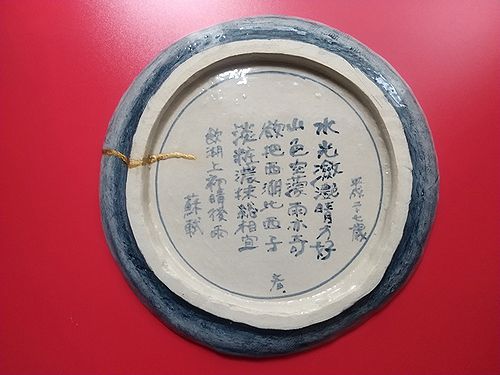 平成二十七歳
水光瀲灔晴方好
山色空濛雨亦奇
欲把西湖比西子
淡粧濃抹総相宜
飲湖上初晴後雨
蘇軾